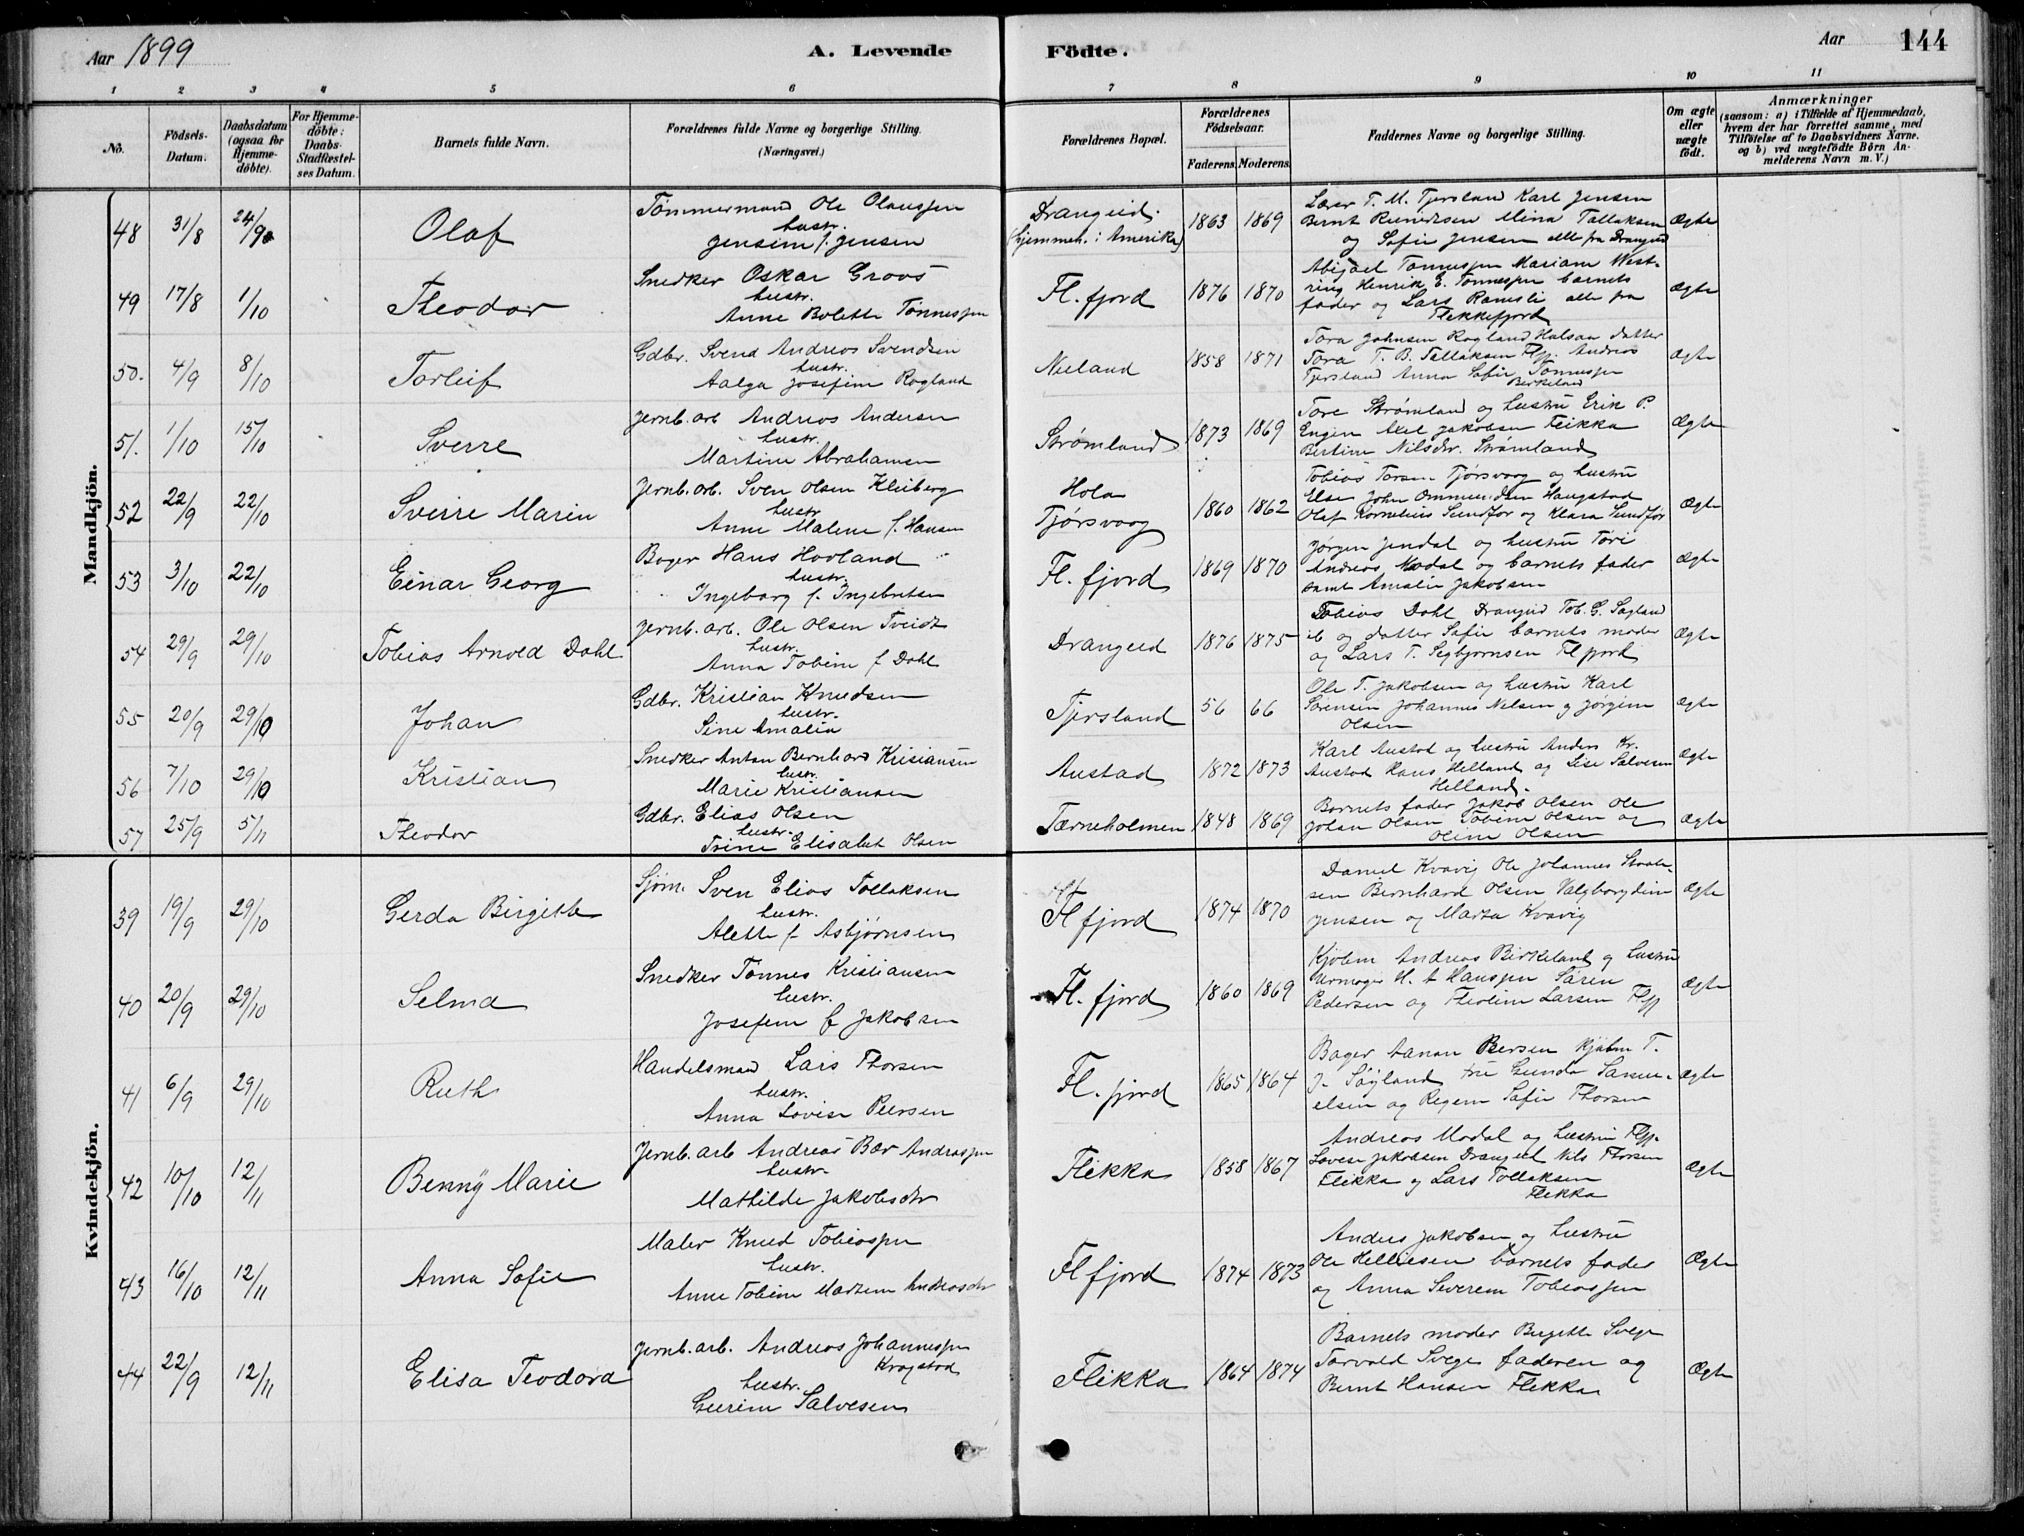 Aar 1899
A. Levende Födte.
Aar 144
1 2 3 4 5 6 7 8 9 10 11
No.
Födsels-Datum.
Daabsdatum (ogsaa for Hjemmedöbte).
For Hjemmedöbte: Daabs-Stadfæstelses Datum.
Barnets fulde Navn.
Forældrenes fulde Navne og borgerlige Stilling.
(Næringsvei.)
Forældrenes Bopæl.
Forældrenes Födselsaar.
Faderens. Moderens.
Faddernes Navne og borgerlige Stilling.
Om ægte eller uægte födt.
Anmærkninger
(saasom: a) i Tilfælde af Hjemmedaab, hvem der har forrettet samme, med Tilföielse af to Daabsvidners Navne. og b) ved uægtefödte Börn Anmelderens Navn m. V.)
Mandkjön.
48 31/8 24/9 Olaf
Tømmermand Ole Olaussen
hustr.
Jensine f. Jensen
Drangeid.
(hjemmeh. i Amerika)
1863 1869
Lærer T. M. Tjersland Karl Jensen
Bernt Reinertsen Mina Tallaksen
og Sofie Jensen alle fra Drangeid
Ægte
49 17/8 1/10 Theodor
Snedker Oskar Groos
hustr.
Anne Bolette Tønnessen
Fl. fjord 1876 1870
Abigael Tønnessen Mariane West-
ring Henrik E. Tønnessen barnets
fader og Lars Ramsli alle fra
Flekkefjord
Ægte
50. 4/9 8/10 Torleif
Gdbr. Svend Andreas Svendsen
hustr.
Aalga Josefine Rogland
Nuland 1858 1871
Tora Johnsen Rogland Halsaa datter
Tora T. B. Tallaksen Flfj. Andreas
Tjersland Anna Sofie Tønnessen
Birkeland
Ægte
51. 1/10 15/10 Sverre
Jernb. arb Andreas Andersen
hustr.
Martine Abrahamsen
Strømland 1873 1869
Tore Strømland og hustru Erik P.
Engen Axel Jakobsen Flikka
Bertine Nilsdtr. Strømland
Ægte
52 22/9 22/10 Sverre Marin
Jernb. arb. Sven Olsen Kleiberg
hustr
Anne Malene f. Hansen
Hola
Tjørsvaag
1860 1862
Tobias Torsen Tjørsvaag og hustru
Else John Ommundsen Haugstad
Olaf Kornelius Sundfør og Klara Sundfør
Ægte
53 3/10 22/10 Einar Georg
Bager Hans Hovland
hustr.
Ingeborg f. Ingebretsen
Fl. fjord 1869 1870
Jørgen Jendal og hustru Tore
Andreas Modal og barnets fader
samt Amalie Jakobsen
Ægte
54 29/9 29/10 Tobias Arnold Dahl
Jernb. arb. Ole Olsen Tveidt
hustr.
Anna Tobine f Dahl
Drangeid 1876 1875
Tobias Dahl Drangeid Tob. G. Søgland
ib og datter Sofie barnets moder
og Lars T. Segbjørnsen Fl fjord
Ægte
55 20/9 29/10 Johan
Gdbr. Kristian Knudsen
hustr.
Sine Amalia
Tjersland 56 66
Ole T. Jakobsen og hustru Karl
Sørensen Johannes Nelsen og Jørgine
Olsen
Ægte
56 7/10 29/10 Kristian
Snedker Anton Bernhard Kristiansen
hustr.
Marie Kristiansen
Austad 1872 1873
Karl Austad og hustru Anders Kr.
Austad Hans Helland og Lise Salvesen
Helland.
Ægte
57 25/9 5/11 Theodor
Gdbr. Elias Olsen
hustr.
Trine Elisabet Olsen
Tærneholmen 1848 1869
Barnets fader Jakob Olsen Ole
Johan Olsen Tobine Olsen og
Oline Olsen
Ægte
Kvindekjön.
39 19/9 29/10 Gerda Birgitte
Sjøm. Sven Elias Tollaksen
hustr.
Alette f Asbjørnsen
Fl fjord 1874 1870
Daniel Kvavig Ole Johannes Skaale-
sen Bernhard Olsen Valgborgdine
Jensen og Marta Kvavig
Ægte
40 20/9 29/10 Selma
Snedker Tønnes Kristiansen
hustr.
Josefine f Jakobsen
Fl. fjord 1860 1869
Kjøbm Andreas Birkeland og hustru
Urmager H. A Hanssen Søren
Pedersen og Theoline Larsen Flfj
Ægte
41 6/9 29/10 Ruth
Handelsmand Lars Thorsen
hustr.
Anna Lovise Peersen
Fl. fjord 1865 1864
Bager Aanon Peersen Kjøbm T.
J. Søyland fru Gunda Samu-
elsen og Regine Sofie Thorsen
Ægte
42 10/10 12/11 Benny Marie
Jernb. arb Andreas Bær Andreassen
hustr
Mathilde Jakobsdtr
Flikka 1858 1867
Andreas Modal og hustru Flfj.
Lovise Jakobsen Drangeid Nils Thorsen
Flikka og Lars Tollaksen
Flikka
Ægte
43 16/10 12/11 Anna Sofie
Maler Knud Tobiassen
hustr.
Anne Tobine Martine Andreasdtr
Fl fjord 1874 1873
Anders Jakobsen og hustru
Ole Helliesen barnets fader
og Anna Severine Tobiassen
Ægte
44 22/9 12/11 Elisa Teodora
Jernb. arb. Andreas Johannessen
Kragstad
hustr.
Gurine Salvesen
Flikka 1864 1874
Barnets moder Birgitte Svege
Torvald Svege faderen og
Bernt Hansen Flikka
Ægte